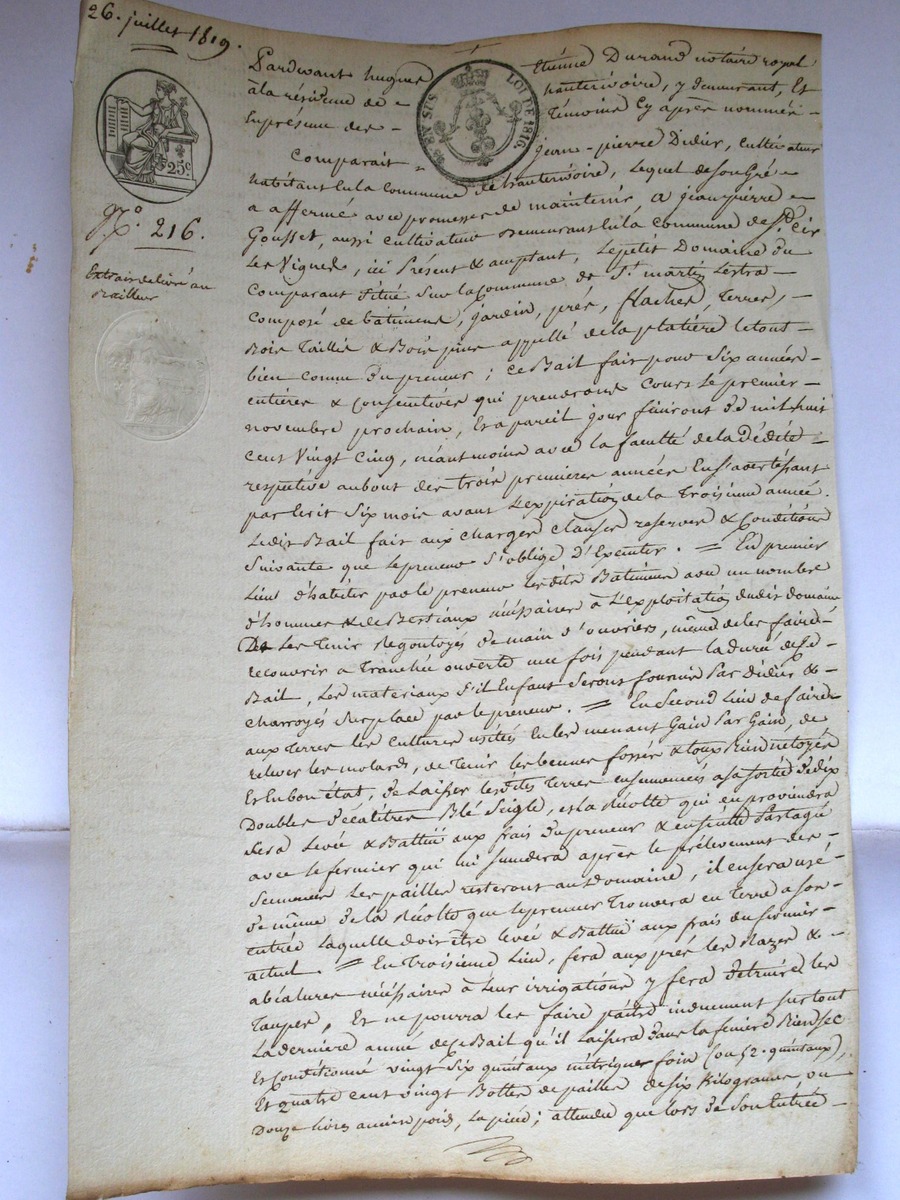 26. juillet 1819.
Pardevant hugues Etienne Durand notaire royal
à la résidence de hauterivoire, y demeurant, Et
En présence des Témoins Cy après nommés
EN SUS LOI DE 1816.
25c
N.o 216.
Extrait delivré au
Bailleur
Comparait jean-pierre Didier, Cultivateur
habitant En la Commune de hauterivoire, Lequel de Son Gré
a affermé avec promesses de maintenir, A jean pierre
Gousset, aussi Cultivateur Demeurant En la Commune de St. Cir
Les Vignes, ici Présent & acceptant, Le petit Domaine du
Comparant Situé Sur la Commune de St. martin Lestra
Composé de bâtiments, jardin, prés, flaches, Terres,
Bois Taillis & Bois pins appellé de la platière le tout
bien Connu Du preneur; Ce Bail fait pour Six années
entières & Consécutives qui prendront Cours Le premier
novembre prochain, Et a pareil jour finiront De mil huit
Cent Vingt Cinq, néantmoins avec la faculté de la Dédite
respective au bout des trois premières années En S'avertissant
par Ecrit Six mois avant L'expiration de la Troisième année.
Ledit Bail fait aux charges clauses reserves & Conditions
Suivantes que le preneur S'oblige D'Executer. = En premier
Lieu D'habiter par le preneur lesdits Batiments avec un nombre
d'hommes & de Bestiaux nécéssaires à L'exploitation dudit domaine
De Les Tenir Regoutoyés De main d'ouvriers, même de les faire
recouvrir a Tranchée ouverte une fois pendant la durée de Ce
Bail, Les materiaux S'il En faut Seront fournis Par Didier &
charroyés Sur place par le preneur. = En Second Lieu de faire
aux Terres les Cultures usitées En les menant Gain Par Gain, de
relever les molards, de Tenir les bennes fossés & toux Bien netoyés
Et En bon état, De Laisser lesdites Terres ensemencées a sa sortie De dix
Doubles Décalitres Blé Seigle, et la Récolte qui en proviendra
Sera Levée & Battue aux frais Du preneur & ensuite Partagée
avec le fermier qui lui Succedera après le prélevement des
Semences Les pailles resteront au Domaine, il en sera usé
De même De la Récolte que le preneur Trouvera en Terre a son
entrée Laquelle doit être levée & Battue aux frais du fermier
actuel = En Troisième Lieu, fera aux prés les Razes &
abéatures nécéssaires à Leur irrigation, y fera Detruire les
Taupes, Et ne pourra les faire paître induement surtout
La dernière année de Ce Bail qu'il Laissera Dans la fenière Bien sec
Et Conditionné vingt Six quintaux métriques foin (ou 52. quintaux),
Et quatre cent vingt Bottes de pailles de Six Kilogrames ou
Douze livres ancien poids, La pièce; attendu que lors de Son Entrée